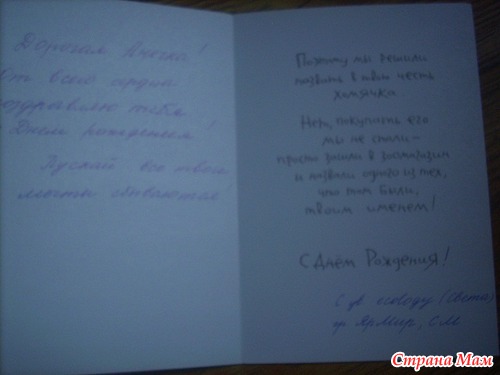 Дорогая Анечка!
От всего сердца
поздравляю тебя с
Днем рождения!
Пускай все твои
мечты сбываются!
Поэтому мы решили
назвать в твою честь
хомячка.
Нет, покупать его
мы не стали –
просто зашли в зоомагазин
и назвали одного из тех,
что там были,
твоим именем!
С Днём Рождения!
С ув. (Света)
г. СМ
Страна Мам